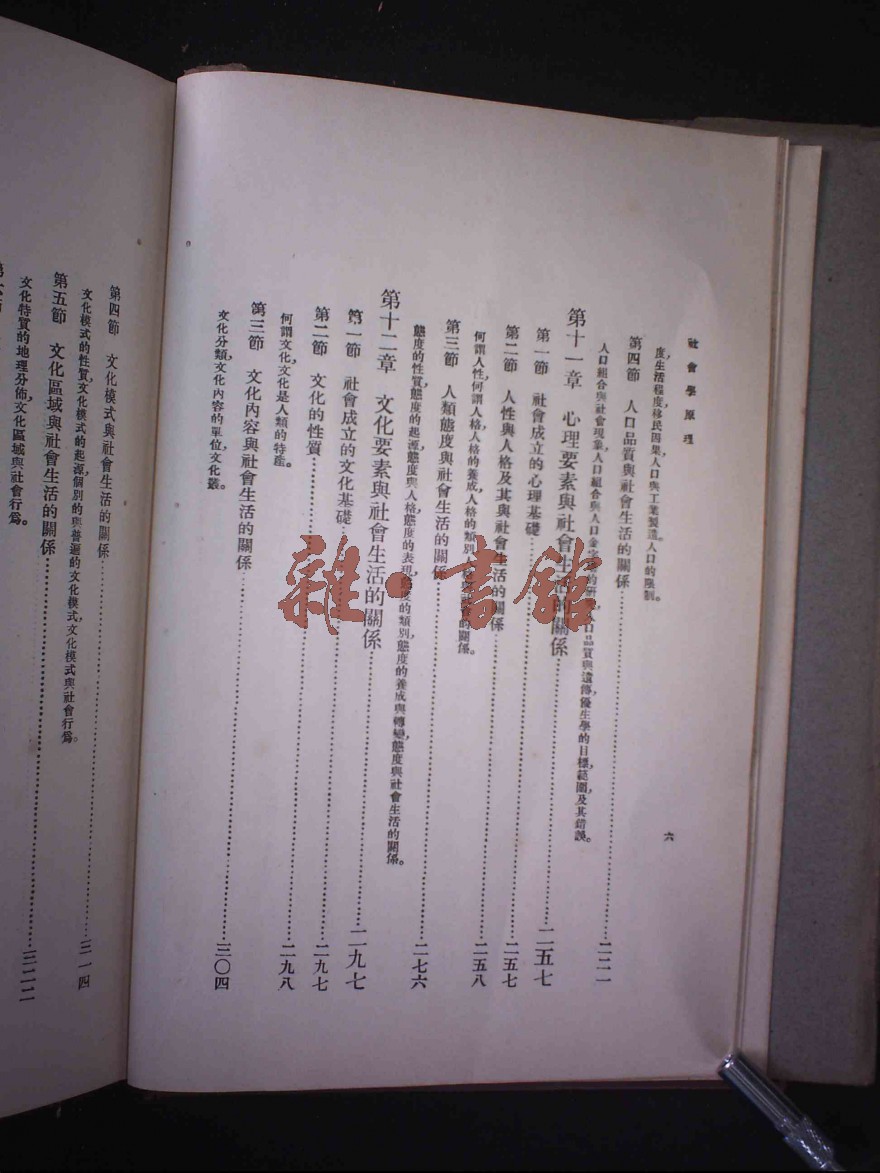 社會學原理
六
度，生活程度，移民因果，人口與工業製造。人口的限制。
第四節 人口品質與社會生活的關係 二二一
人口組合與社會現象，人口組合與人口金字的研人口品質與遺傳，優生學的目標，範圍，及其錯誤。
第十一章 心理要素與社會生活的關係 二五七
第一節 社會成立的心理基礎 二五七
第二節 人性與人格及其與社會生活的關係 二五八
何謂人性，何謂人格，人格的養成，人格的類別，人格的關係。
第三節 人類態度與社會生活的關係 二七六
態度的性質，態度的起源，態度與人格，態度的表現，態度的類別，態度的養成與轉變，態度與社會生活的關係。
第十二章 文化要素與社會生活的關係 二九七
第一節 社會成立的文化基礎 二九七
第二節 文化的性質 二九八
何謂文化，文化是人類的特產。
第三節 文化內容與社會生活的關係 三〇四
文化分類，文化內容的單位，文化叢。
第四節 文化模式與社會生活的關係 三一四
文化模式的性質，文化模式的起源，個別的與普遍的文化模式，文化模式與社會行為。
第五節 文化區域與社會生活的關係 三二二
文化特質的地理分佈，文化區域與社會行為。
雜·書館